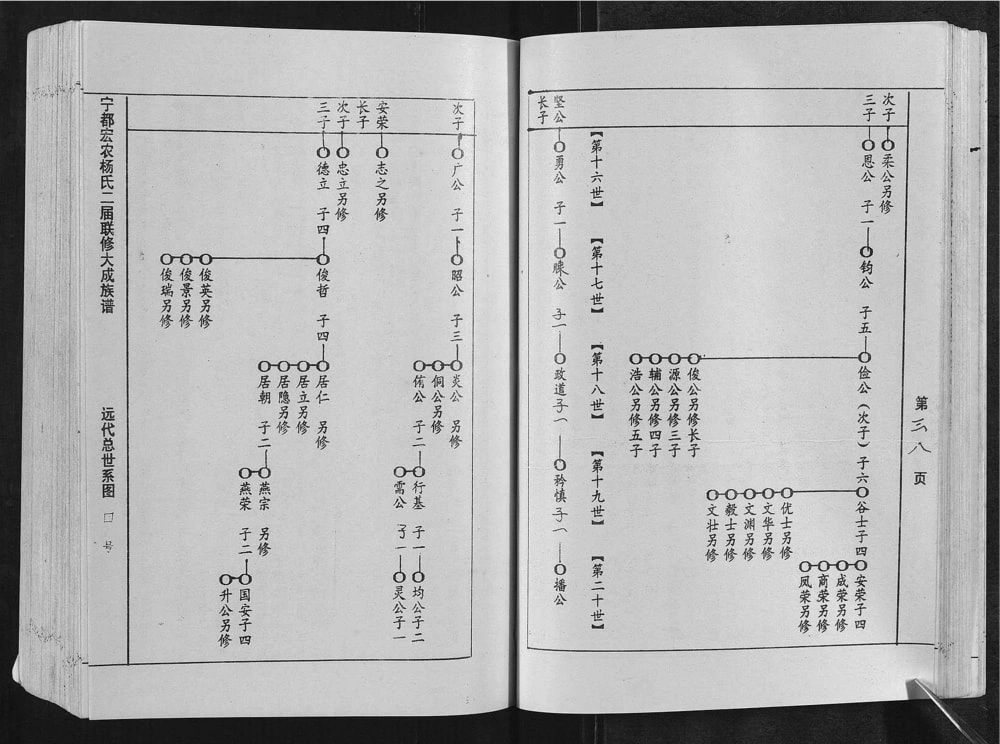 第三八页
次子
柔公另修
三子
恩公 子一
钧公 子五
俭公(次子)子六
谷士子四
安荣子四
成荣另修
商荣另修
凤荣另修
优士另修
文华另修
文渊另修
毅士另修
文壮另修
俊公另修长子
源公另修三子
辅公另修四子
浩公另修五子
【第十六世】
【第十七世】
【第十八世】
【第十九世】
【第二十世】
坚公
长子
勇公 子一
子一
政道子一
矜慎子一
播公
次子
广公 子一
昭公 子三
炎公 另修
侗公另修
侑公 子二
行基 子一
均公子二
需公 子一
灵公子一
安荣
长子
志之另修
次子
忠立另修
三子
德立 子四
俊哲 子四
居仁 另修
居立另修
居隐另修
居朝 子二
燕宗 另修
燕荣 子二
国安子四
升公另修
俊英另修
俊景另修
俊瑞另修
宁都宏农杨氏二届联修大成族谱
远代总世系图
号